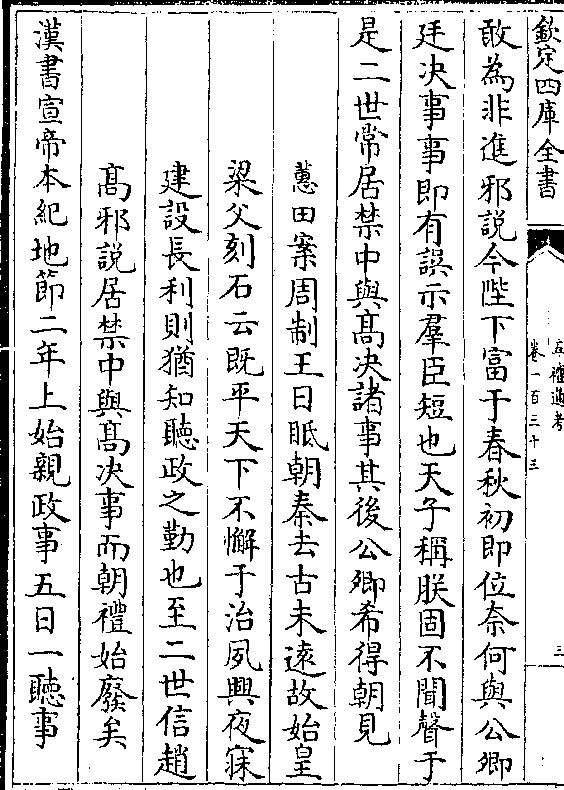 欽定四庫全書
五禮通考
卷一百三十三
三
敢為非進邪説今陛下富于春秋初即位奈何與公卿
廷决事事即有誤示羣臣短也天子稱朕固不聞聲于
是二世常居禁中與髙决諸事其後公卿希得朝見
蕙田案周制王日眡朝秦去古未逺故始皇
梁父刻石云既平天下不懈于治夙興夜寐
建設長利則猶知聽政之勤也至二世信趙
髙邪說居禁中與髙决事而朝禮始廢矣
漢書宣帝本紀地節二年上始親政事五日一聽事